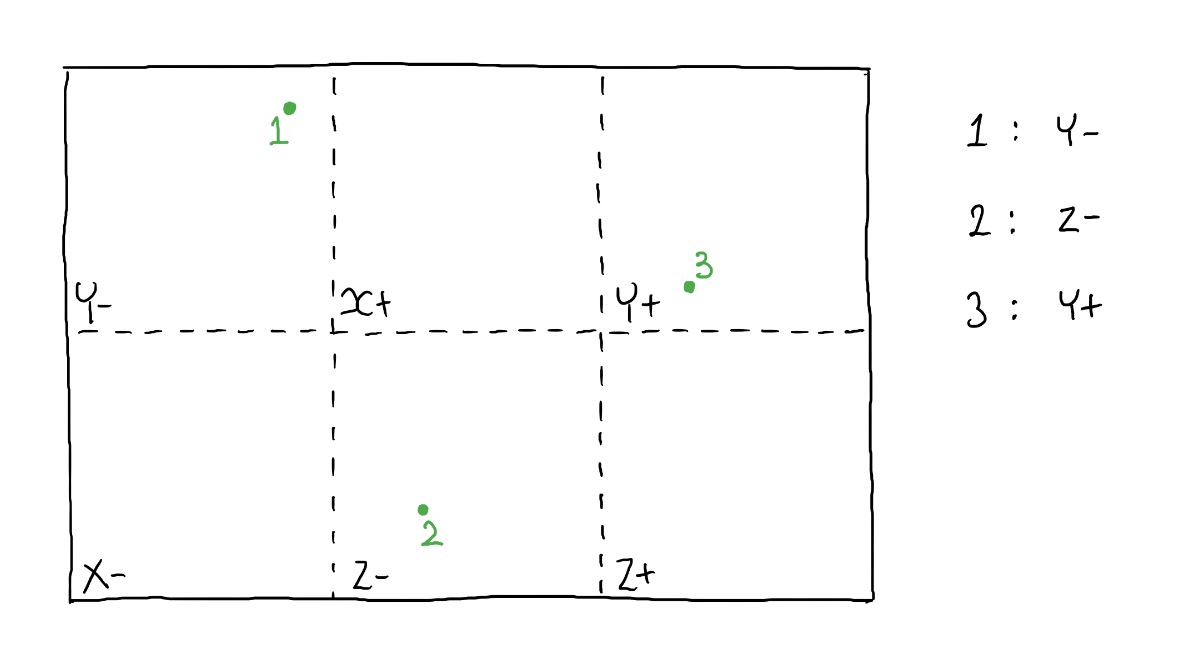 1
3
Y- X+ Y+
2
X- Z- Z+
1 : Y-
2 : Z-
3 : Y+